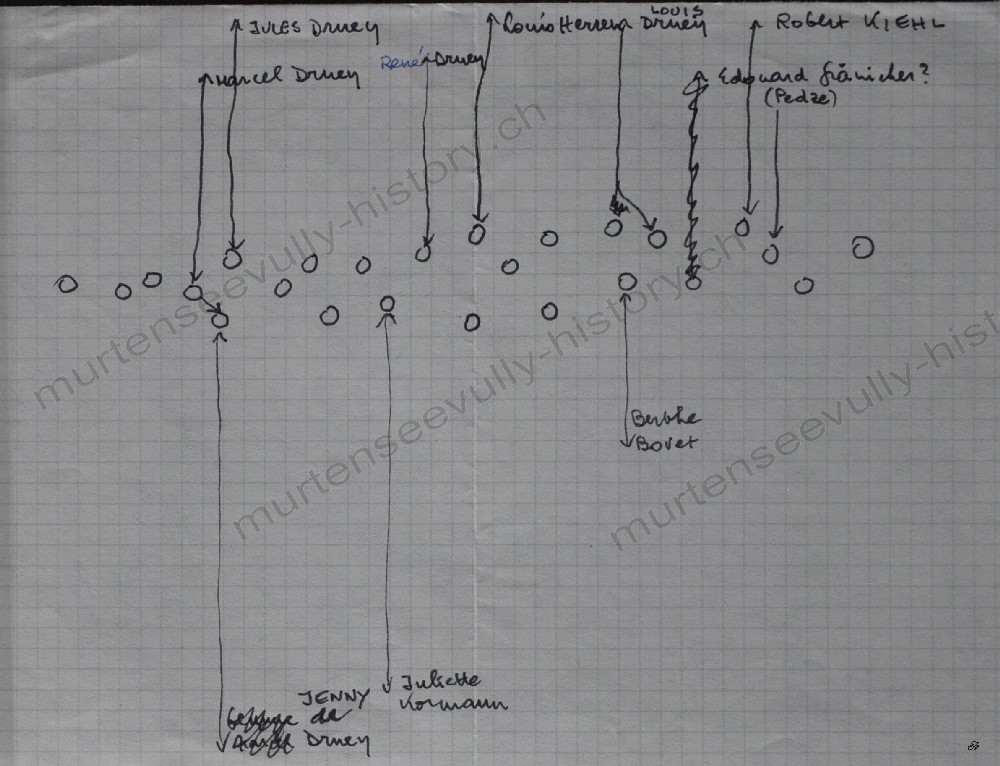 LOUIS
JULES Druey
Louis Herren Druey
Robert KIEHL
Marcel Druey
René Druey
Edouard Fränicher?
(Pedze)
murtenseevully-history.ch
murtenseevully-history.ch
murtenseevully-history.ch
Berthe
Bovet
JENNY
Juliette
Kormann
de
Druey